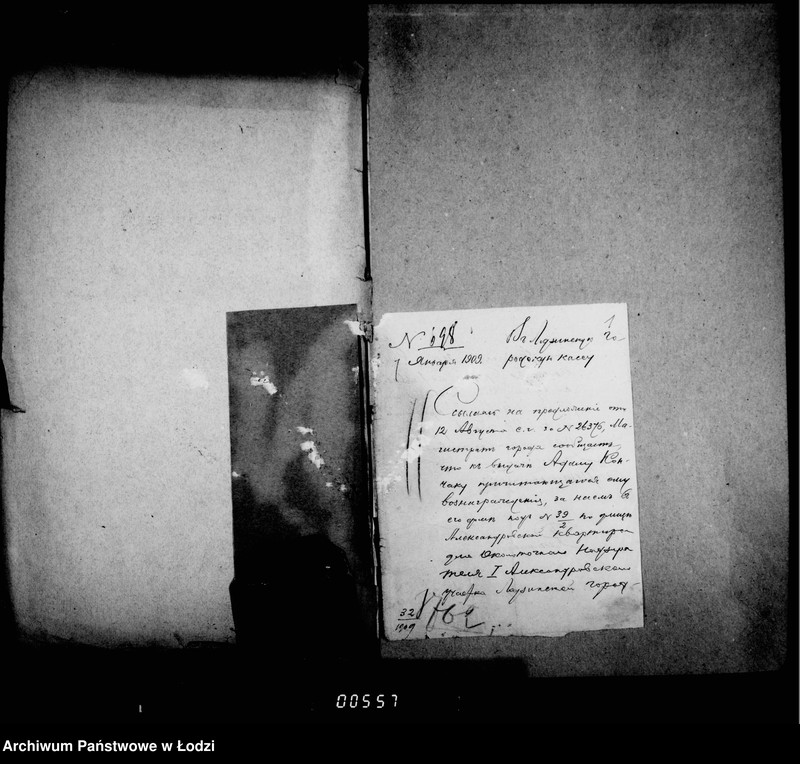 1
N 198
Въ Лодзинскую го-
7 Января 1909
родскую кассу
Ссылаясь на предписаніе отъ
12 Августа с.г. за N 26376, Ма-
гистратъ города сообщаетъ,
что къ выдачѣ Адаму Кон-
чаку причитающагося ему
вознагражденія, за наемъ въ
его домѣ подъ N 39/2 по улицѣ
Александровской квартиры
для Околоточнаго Надзира
теля I Александровскаго
участка Лодзинской город-
32
1909
00557
Archiwum Państwowe w Łodzi